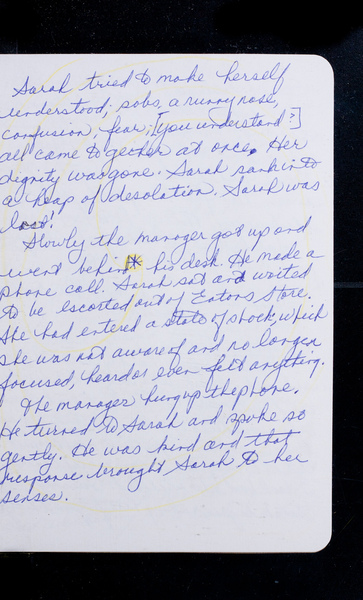 Sarah tried to make herself
understood; sobs, a runny nose,
confusion, fear, [you understand?]
all came together at once. Her
dignity was gone. Sarah sank into
a heap of desolation. Sarah was
lost!
Slowly the manager got up and
went behind his desk. He made a
phone call. Sarah sat and waited
to be escorted out of Eatons Store.
She had entered a state of shock, which
she was not aware of and no longer
focused, heard or even felt anything.
The manager hung up the phone.
He turned to Sarah and spoke so
gently. He was kind and that
response brought Sarah to her
senses.